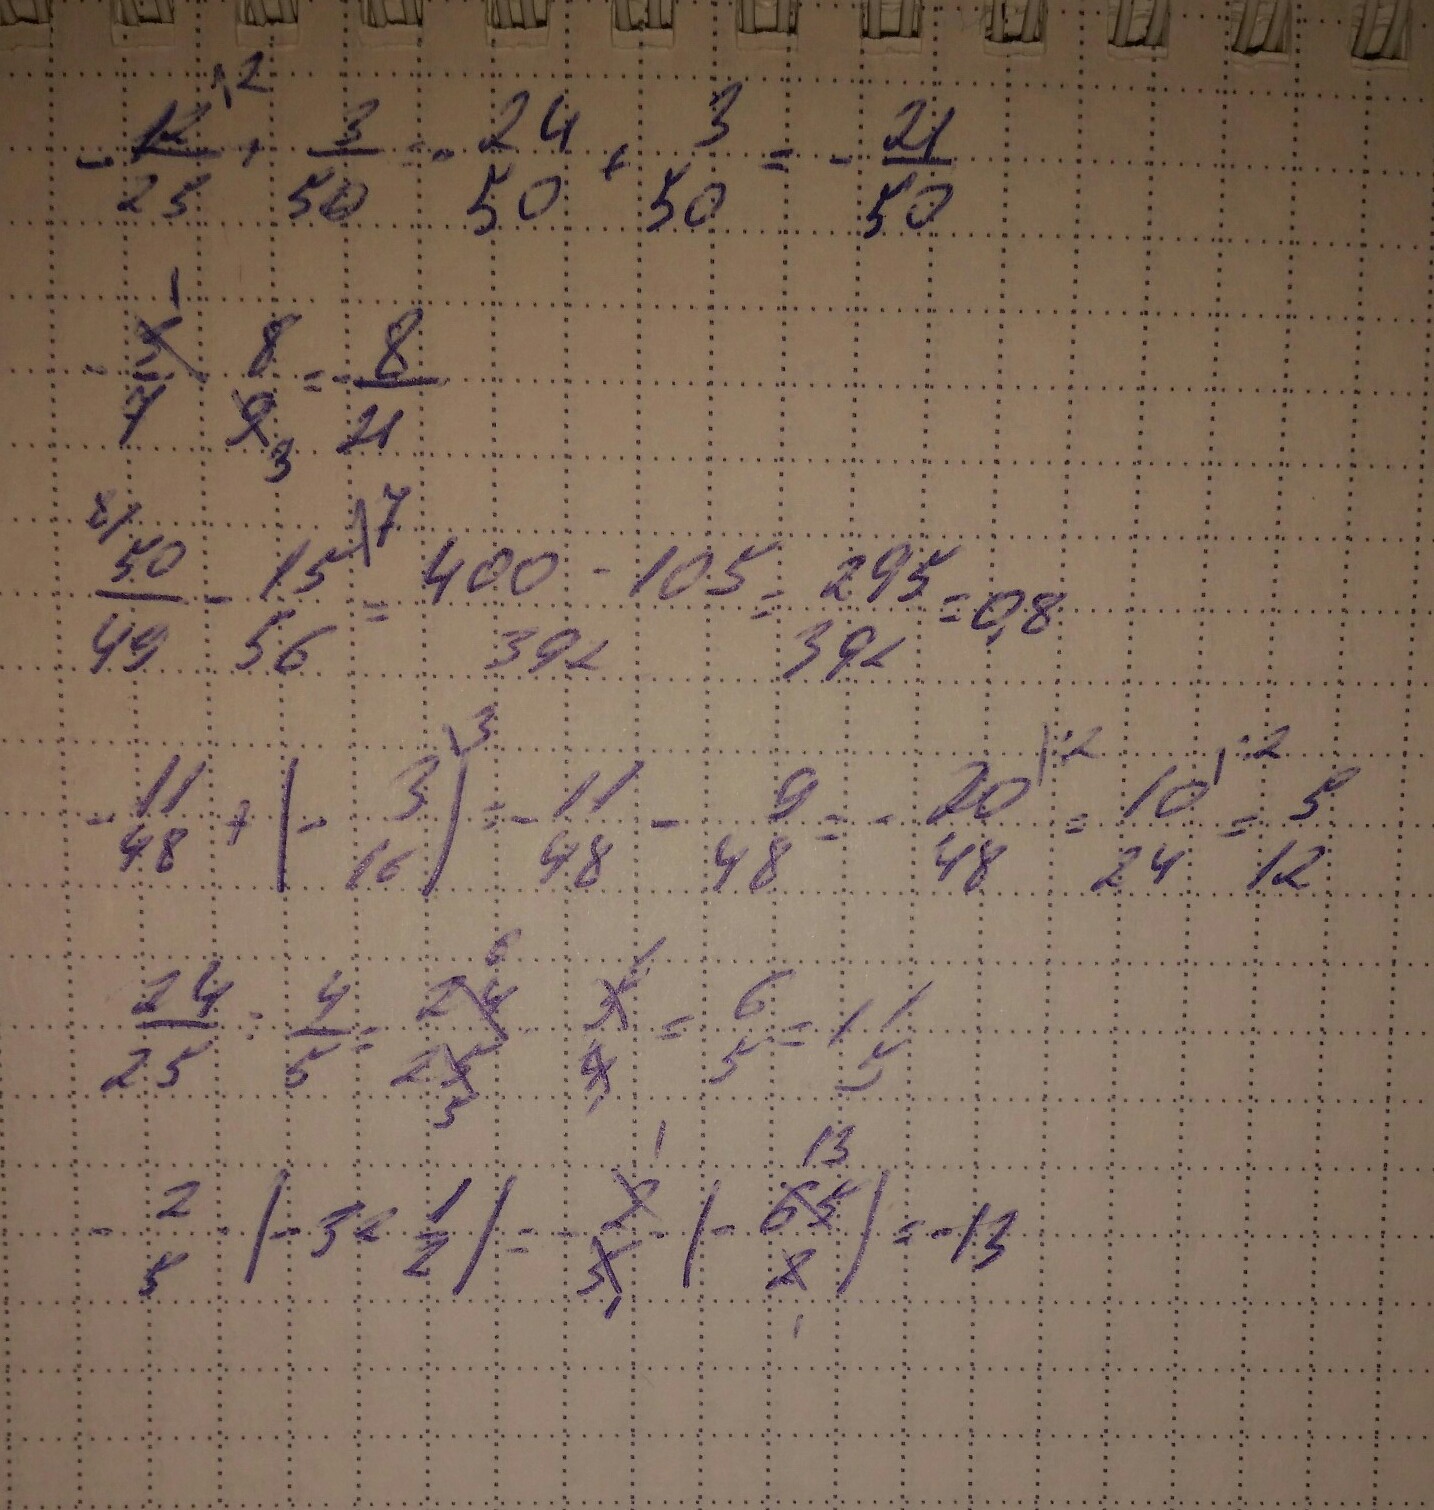 - 12/25 \2 + 3/50 = - 24/50 + 3/50 = - 21/50
- 3/7 · 8/9 = - 8/21
8/ 50/49 - 15/56 \7 = 400 - 105 / 392 = 295/392 = 0,8
- 11/48 + (- 3/16) \3 = - 11/48 - 9/48 = - 20/48 |:2 = 10/24 |:2 = 5/12
24/25 : 4/5 = 24/25 · 5/4 = 6/5 = 1 1/5
- 2/5 · (-32 1/2) = - 2/5 (- 65/2) = -13